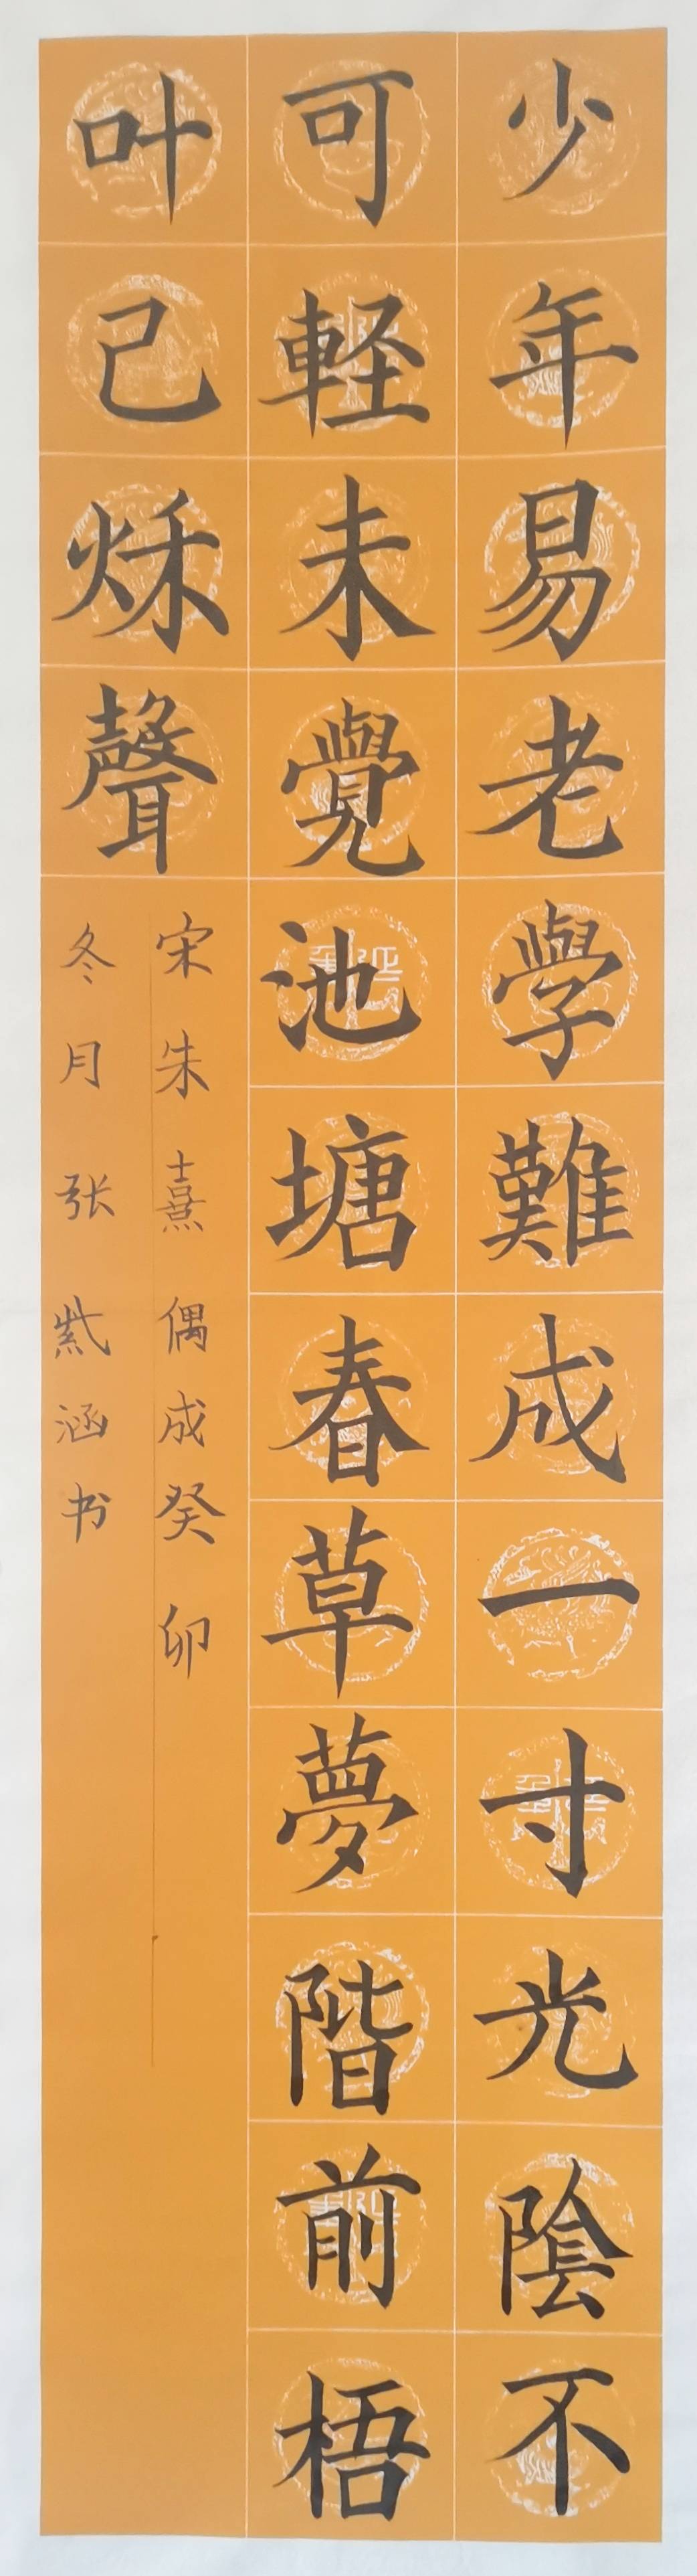 少年易老學難成一寸光陰不
可軽未覺池塘春草夢階前梧
叶已秌聲
宋朱熹偶成癸卯
冬月张紫涵书